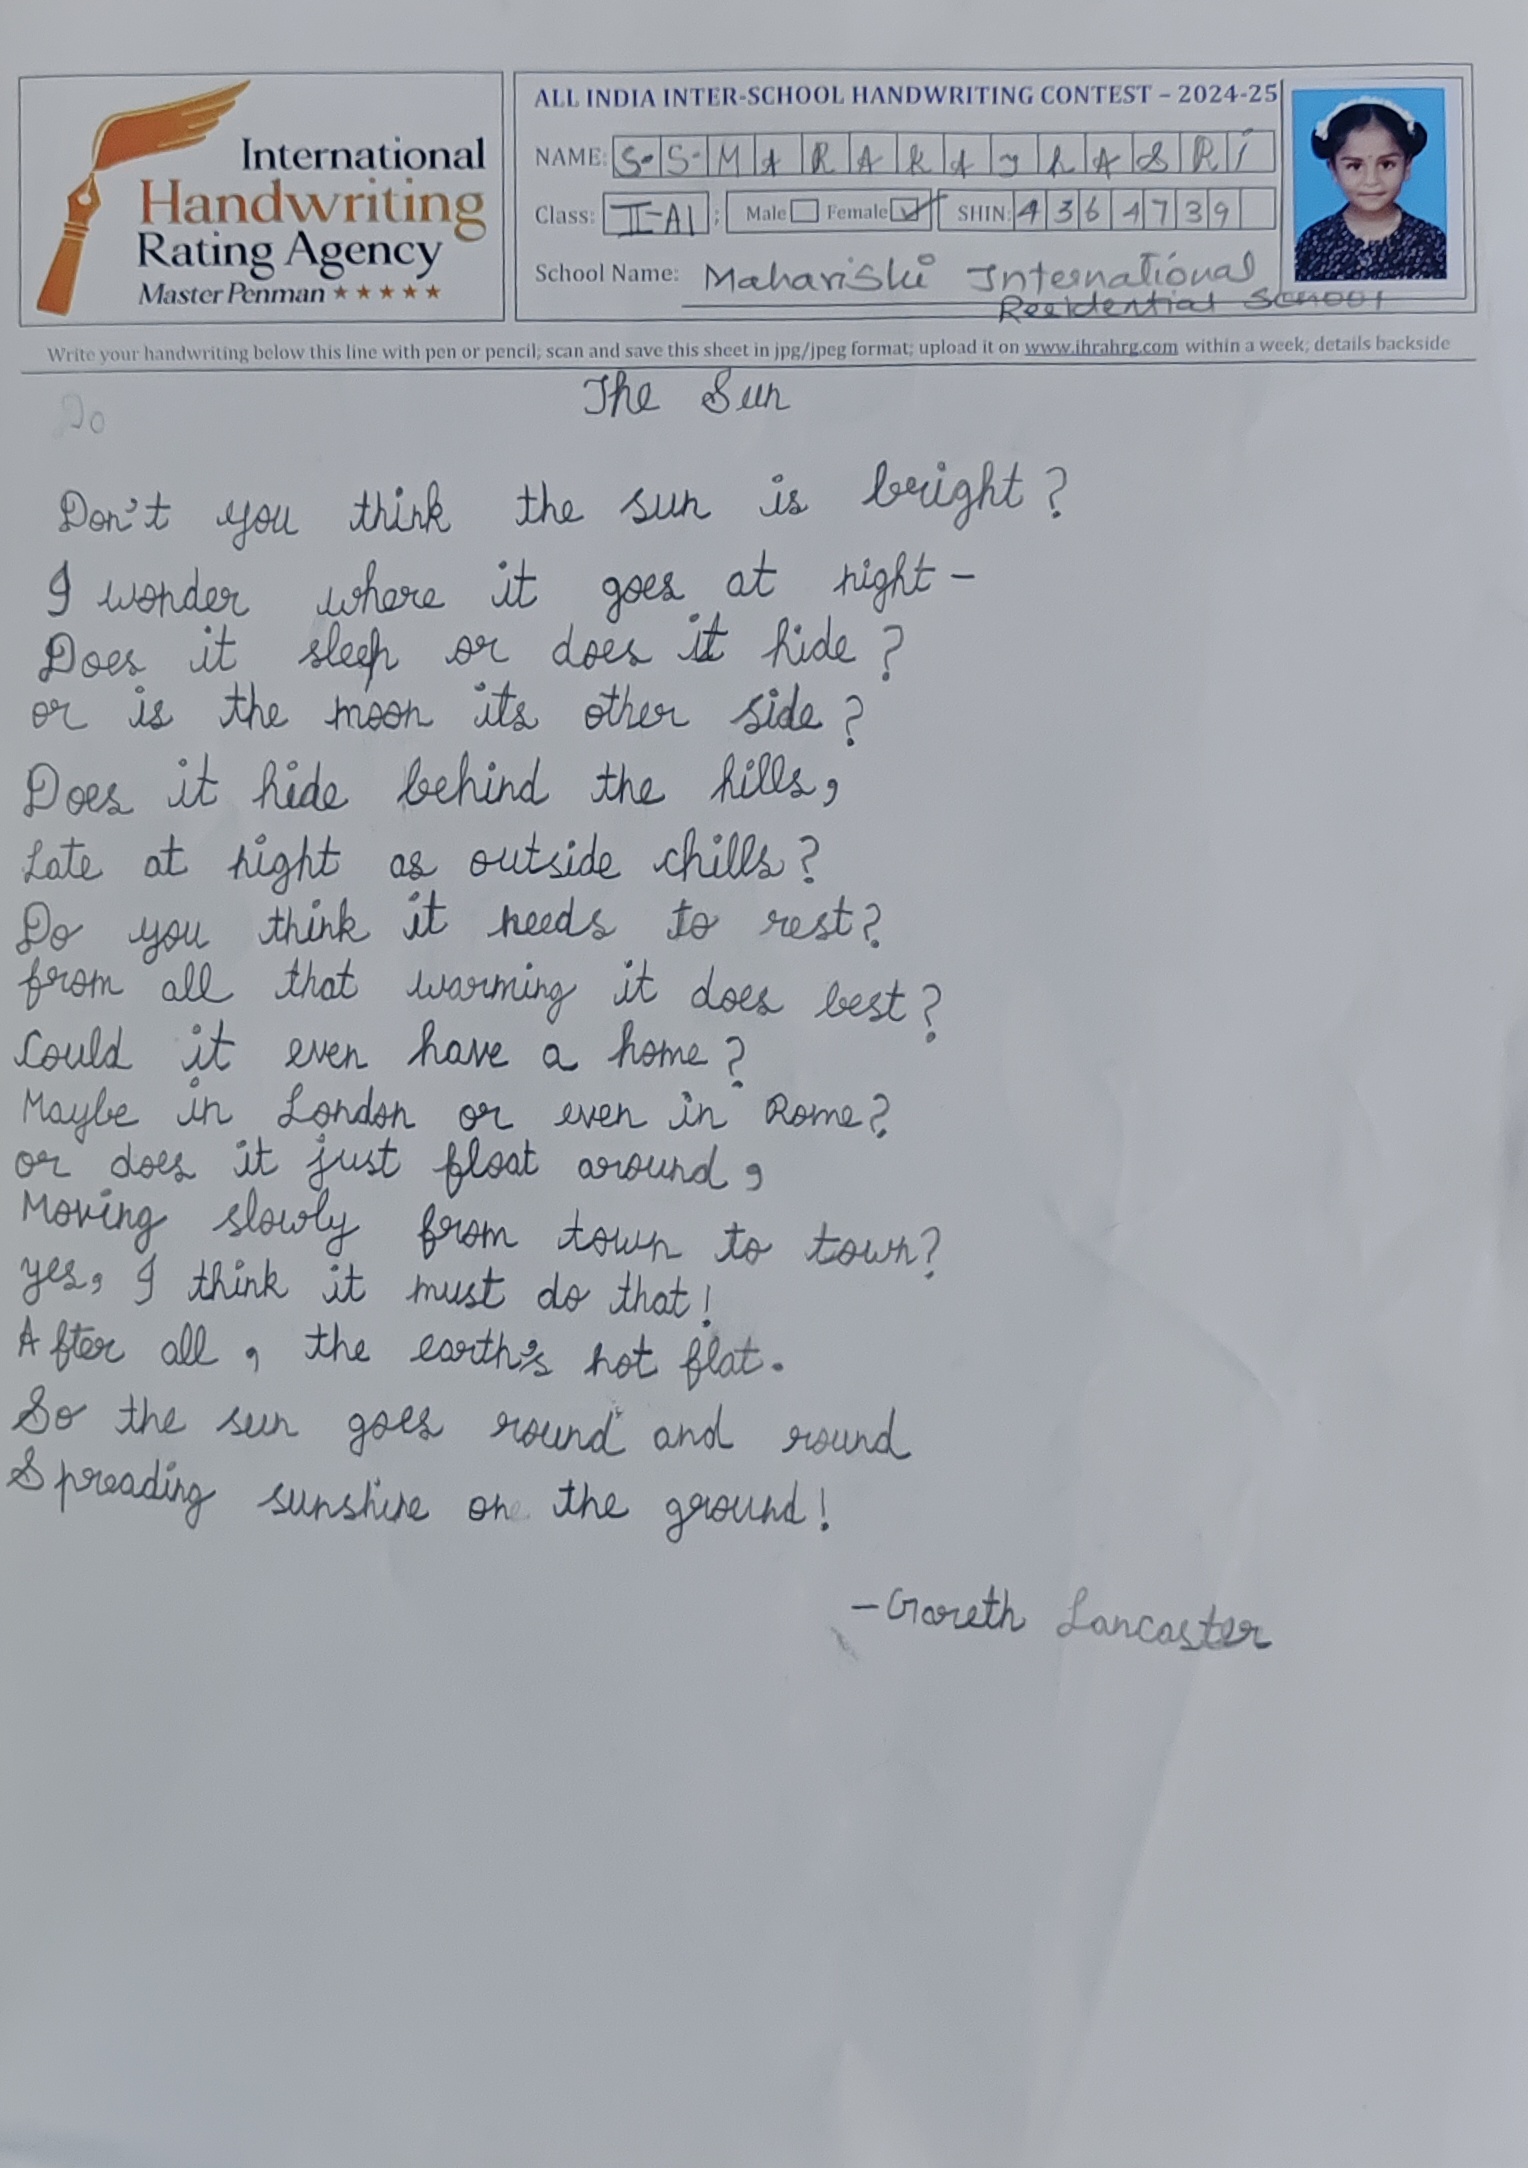 International
Handwriting
Rating Agency
Master Penman ★★★★★
ALL INDIA INTER-SCHOOL HANDWRITING CONTEST – 2024-25
NAME: S. S. MARAKAyhASRi
Class: II-A1 ; Male Female SHIN: 4364739
School Name: Maharishi International
Residential School
Write your handwriting below this line with pen or pencil; scan and save this sheet in jpg/jpeg format; upload it on www.ihrahrg.com within a week; details backside
The Sun
Do
Don't you think the sun is bright?
I wonder where it goes at night –
Does it sleep or does it hide?
or is the moon its other side?
Does it hide behind the hills,
Late at night as outside chills?
Do you think it needs to rest?
from all that warming it does best?
Could it even have a home?
Maybe in London or even in Rome?
or does it just float around,
Moving slowly from town to town?
yes, I think it must do that!
After all, the earth's not flat.
So the sun goes round and round
Spreading sunshine on the ground!
– Gareth Lancaster